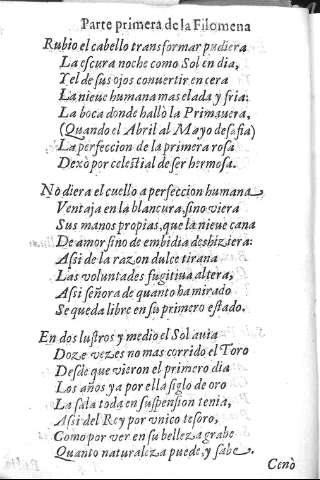 Parte primera de la Filomena
Rubio el cabello transformar pudiera
La escura noche como Sol en dia,
Y el de sus ojos conuertir en cera
La nieue humana mas elada y fria:
La boca donde hallò la Primauera,
(Quando el Abril al Mayo desafia)
La perfeccion de la primera rosa
Dexò por celestial de ser hermosa.
No diera el cuello a perfeccion humana
Ventaja en la blancura, sino viera
Sus manos propias, que la nieue cana
De amor sino de embidia deshiziera:
Assi de la razon dulce tirana
Las voluntades fugitiua altera,
Assi señora de quanto ha mirado
Se queda libre en su primero estado.
En dos lustros y medio el Sol auia
Doze vezes no mas corrido el Toro
Desde que vieron el primero dia
Los años ya por ella siglo de oro
La sala toda en suspension tenia,
Assi del Rey por vnico tesoro,
Como por ver en su belleza grabe
Quanto naturaleza puede, y sabe.
Cenò